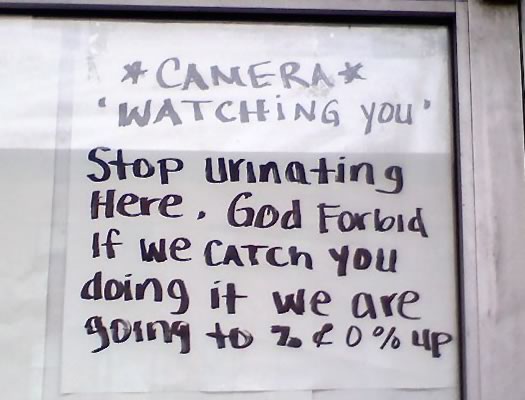 *CAMERA*
'WATCHING you'
Stop urinating
Here. God Forbid
If we CATCh you
doing it we are
going to % ¢ 0 % up